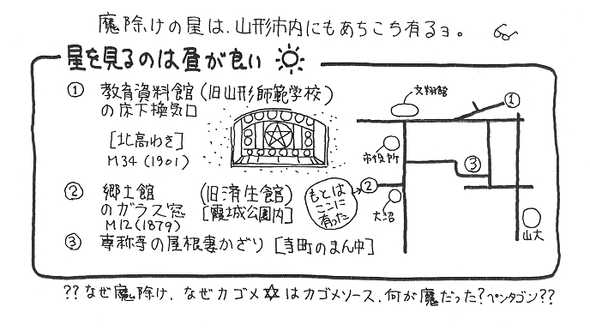 魔除けの星は、山形市内にもあちこち有るョ。
星を見るのは昼が良い
① 教育資料館(旧山形師範学校)
の床下換気口
[北高わき]
M34(1901)
② 郷土館 (旧済生館)
のガラス窓 [霞城公園内]
M12(1879)
③ 専称寺の屋根妻かざり [寺町のまん中]
もとは
ここに
有った
文翔館
①
市役所
③
②
大沼
山大
??なぜ魔除け、なぜカゴメ✡はカゴメソース、何が魔だった?ペンタゴン??